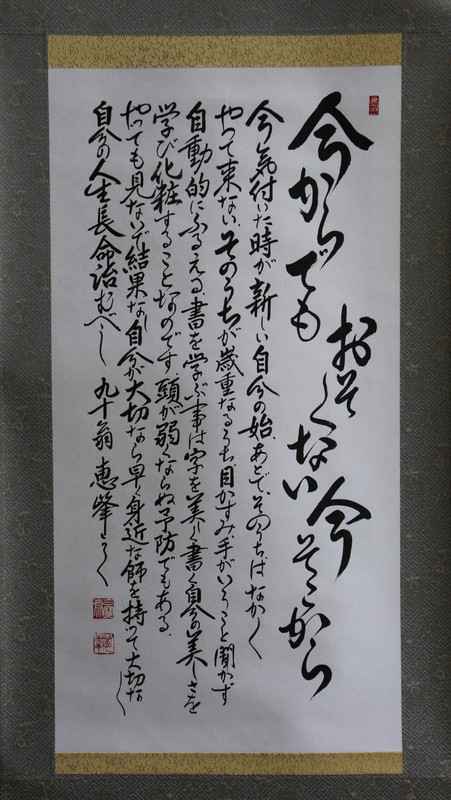 今からでも
おそくない
今
から
今気付いた時が新しい自分の始、あとで、そのうちはなか〱
やって来ない、そのうちが歳重なるうち、目かすみ手がいうこと聞かず
自動的にふるえる書を学ぶ事は字を美しく書く自分の美しさを
学び化粧することなのです、頭が弱くならぬ予防でもある、
やっても見ないで結果なし自分が大切なら早く身近な師を持って大切な
自分の人生長命治むべし 九十翁 恵峯かく